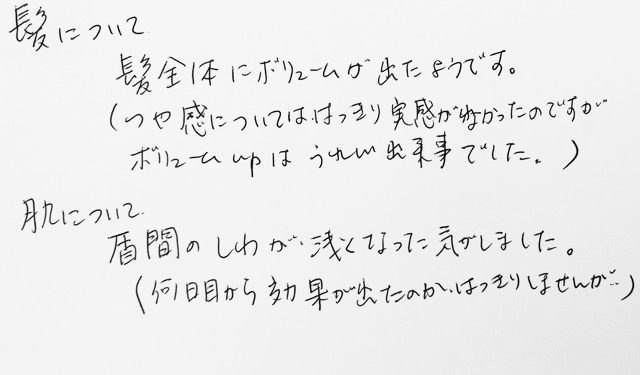 髪について
髪全体にボリュームが出たようです。
(つや感については、はっきり実感がなかったのですが
ボリュームupはうれしい出来事でした。)
肌について
眉間のしわが浅くなった気がしました。
(何日目から効果が出たのか、はっきりしませんが…)